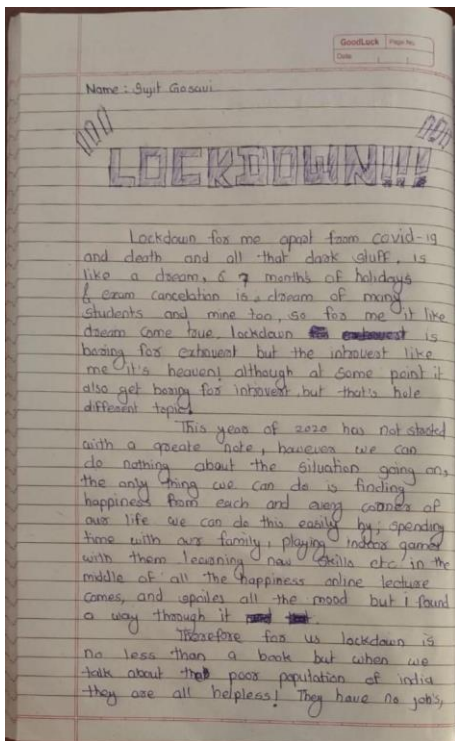 GoodLuck Page No.
Date
Name : Sujit Gosavi
LOCKDOWN!!!
Lockdown for me apart from covid-19
and death and all that dark stuff, is
like a dream, 6 7 months of holidays
& exam cancelation is a dream of many
students and mine too, so for me it like
dream come true, lockdown is
boring for extrovert but the introvert like
me it's heaven! although at some point it
also get boring for introvert but that's hole
different topic!
This year of 2020 has not started
with a greate note, however we can
do nothing about the situation going on,
the only thing we can do is finding
happiness from each and every corner of
our life we can do this easily by; spending
time with our family, playing indoor games
with them learning new skills etc in the
middle of all the happiness online lecture
comes, and spoiles all the mood but i found
a way through it
Therefore for us lockdown is
no less than a book but when we
talk about the poor population of india
they are all helpless! They have no job's,